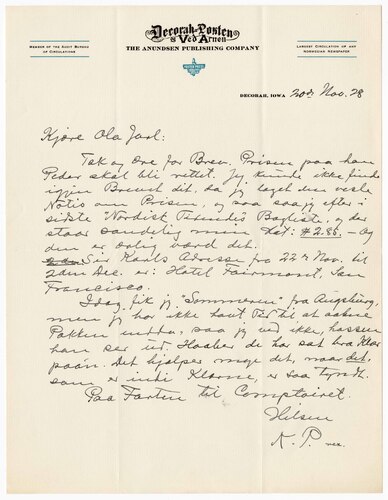 Decorah-Posten
& Ved Arnen
THE ANUNDSEN PUBLISHING COMPANY
MEMBER OF THE AUDIT BUREAU
OF CIRCULATIONS
LARGEST CIRCULATION OF ANY
NORWEGIAN NEWSPAPER
DECORAH, IOWA 20de Nov. 28
Kjære Ola Jarl:
Tak og Ære for Brev. Prisen paa han
Peder skal bli rettet. Jeg kunde ikke finde
igjen Brevet dit, da jeg laget den vesle
Notis om Prisen, og saa saa jeg efter i
sidste "Nordisk Tidendes" og der
staar sandelig min Hat: $2.85. – Og
den er ærlig værd det.
Sir Karls Adresse fra 22de Nov. til
2den Dec. er: Hotel Fairmont, San
Francisco.
Idag fik jeg "Sommeren" fra Augsburg,
men jeg har ikke havt Tid til at aabne
Pakken endda, saa jeg ved ikke, hassen
han ser ud. Haaber de har sat bra Klær
paa'n. Det hjælper møge det, naar det,
som er indi Klærne, er saa tyndt.
Paa Farten til Comptoiret.
Hilsen
K. P.